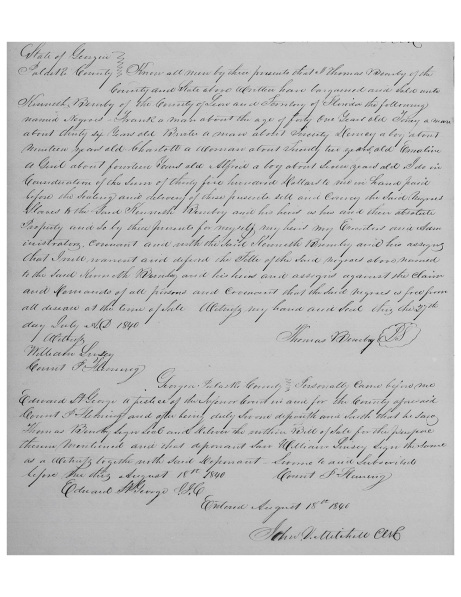 State of Georgia
Pulaski County Know all men by these presents that I Thomas Bembry of the
County and State above Written have bargained and Sold unto
Kenneth Bembry of the County of Leon and Territory of Florida the following
named Negroes Frank a man about the age of forty One Years old a man
about thirty Years old a man about Twenty Henry a boy about
nineteen Years old Charlott a Woman about Twenty two years old Emeline
a Girl about fourteen Years old Alfred a boy about Seven years old I do in
Consideration of the Sum of thirty five hundred Dollars to me in hand paid
before the Sealing and delivery of these presents sell and Convey the Said Negroes
Slaves to the Said Kenneth Bembry and his heirs as his and their absolute
Property and do by these presents for myself my heirs my Executors and Adm
inistrators Covenant and with the Said Kenneth Bembry and his assigns
that I will warrant and defend the Title of the Said negroes above named
to the Said Kenneth Bembry and his heirs and assigns against the Claim
and Demands of all persons and Covenant that the Said negroes is free from
all disease at the time of Sale Witness my hand and Seal this the 27th
day July AD 1840
Witness Thomas Bembry
William
F Fleming
Georgia Pulaski County Personally Came before me
Edward St George a justice of the Inferior Court in and for the County aforesaid
F Fleming and after being duly Sworn deposeth and Saith that he Saw
Thomas Bembry Sign Seal and deliver the within Bill of Sale for the purpose
therein Mentioned and that deponant Saw William Sign the Same
as a Witness together with Said Deponant Sworne to and Subscribed
before me this August 18th 1840 F Fleming
Edward St George J.I.C
Entered August 18th 1840
John D. Mitchell Clk